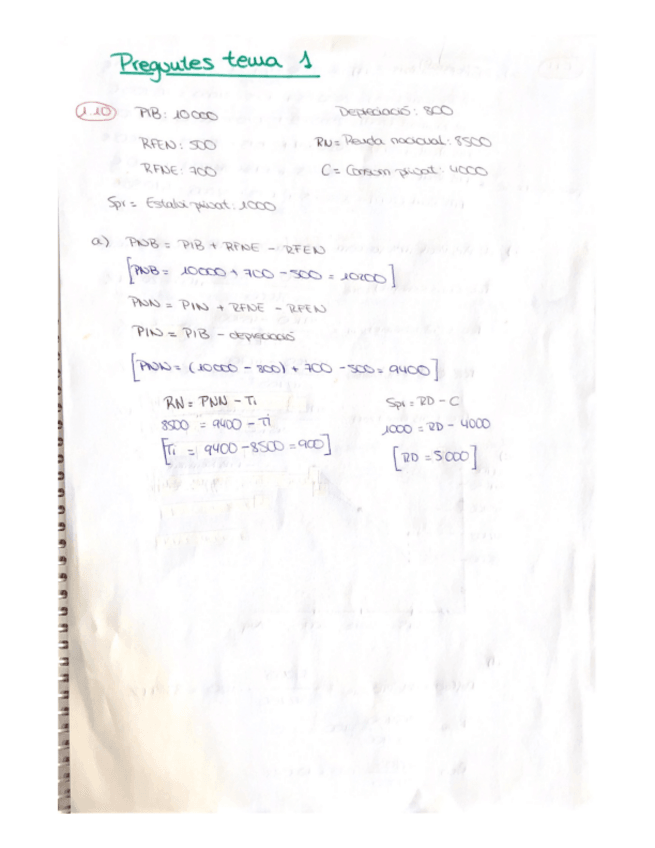 Preguntes tema 1
1.10 PIB: 10000 Depreciació: 800
RFEN: 500 RN = Renda nacional: 8500
RFNE: 700 C = Consum privat: 4000
Spr = Estalvi privat: 1000
a) PNB = PIB + RFNE - RFEN
[PNB = 10000 + 700 - 500 = 10200]
PNN = PIN + RFNE - RFEN
PIN = PIB - depreciació
[PNN = (10000 - 800) + 700 - 500 = 9400]
RN = PNN - Ti Spr = RD - C
8500 = 9400 - Ti 1000 = RD - 4000
[Ti = 9400 - 8500 = 900] [RD = 5000]